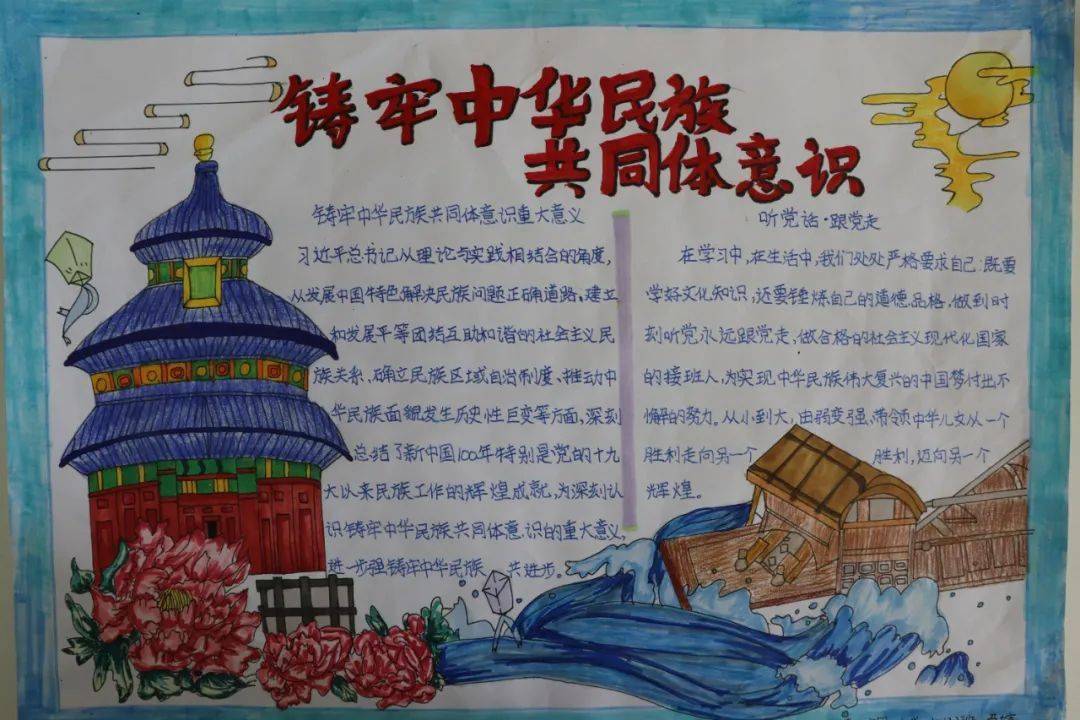 铸牢中华民族
共同体意识
铸牢中华民族共同体意识重大意义
习近平总书记从理论与实践相结合的角度,
从发展中国特色解决民族问题正确道路、建立
和发展平等团结互助和谐的社会主义民
族关系、确立民族区域自治制度、推动中
华民族面貌发生历史性巨变等方面,深刻
总结了新中国100年特别是党的十九
大以来民族工作的辉煌成就,为深刻认
识铸牢中华民族共同体意识的重大意义,
进一步强铸牢中华民族 共进步。
听党话·跟党走
在学习中,在生活中,我们处处严格要求自己:既要
学好文化知识,还要锤炼自己的道德品格,做到时
刻听党永远跟党走,做合格的社会主义现代化国家
的接班人,为实现中华民族伟大复兴的中国梦付出不
懈的努力。从小到大,由弱变强,带领中华儿女从一个
胜利走向另一个 胜利,迈向另一个
辉煌。